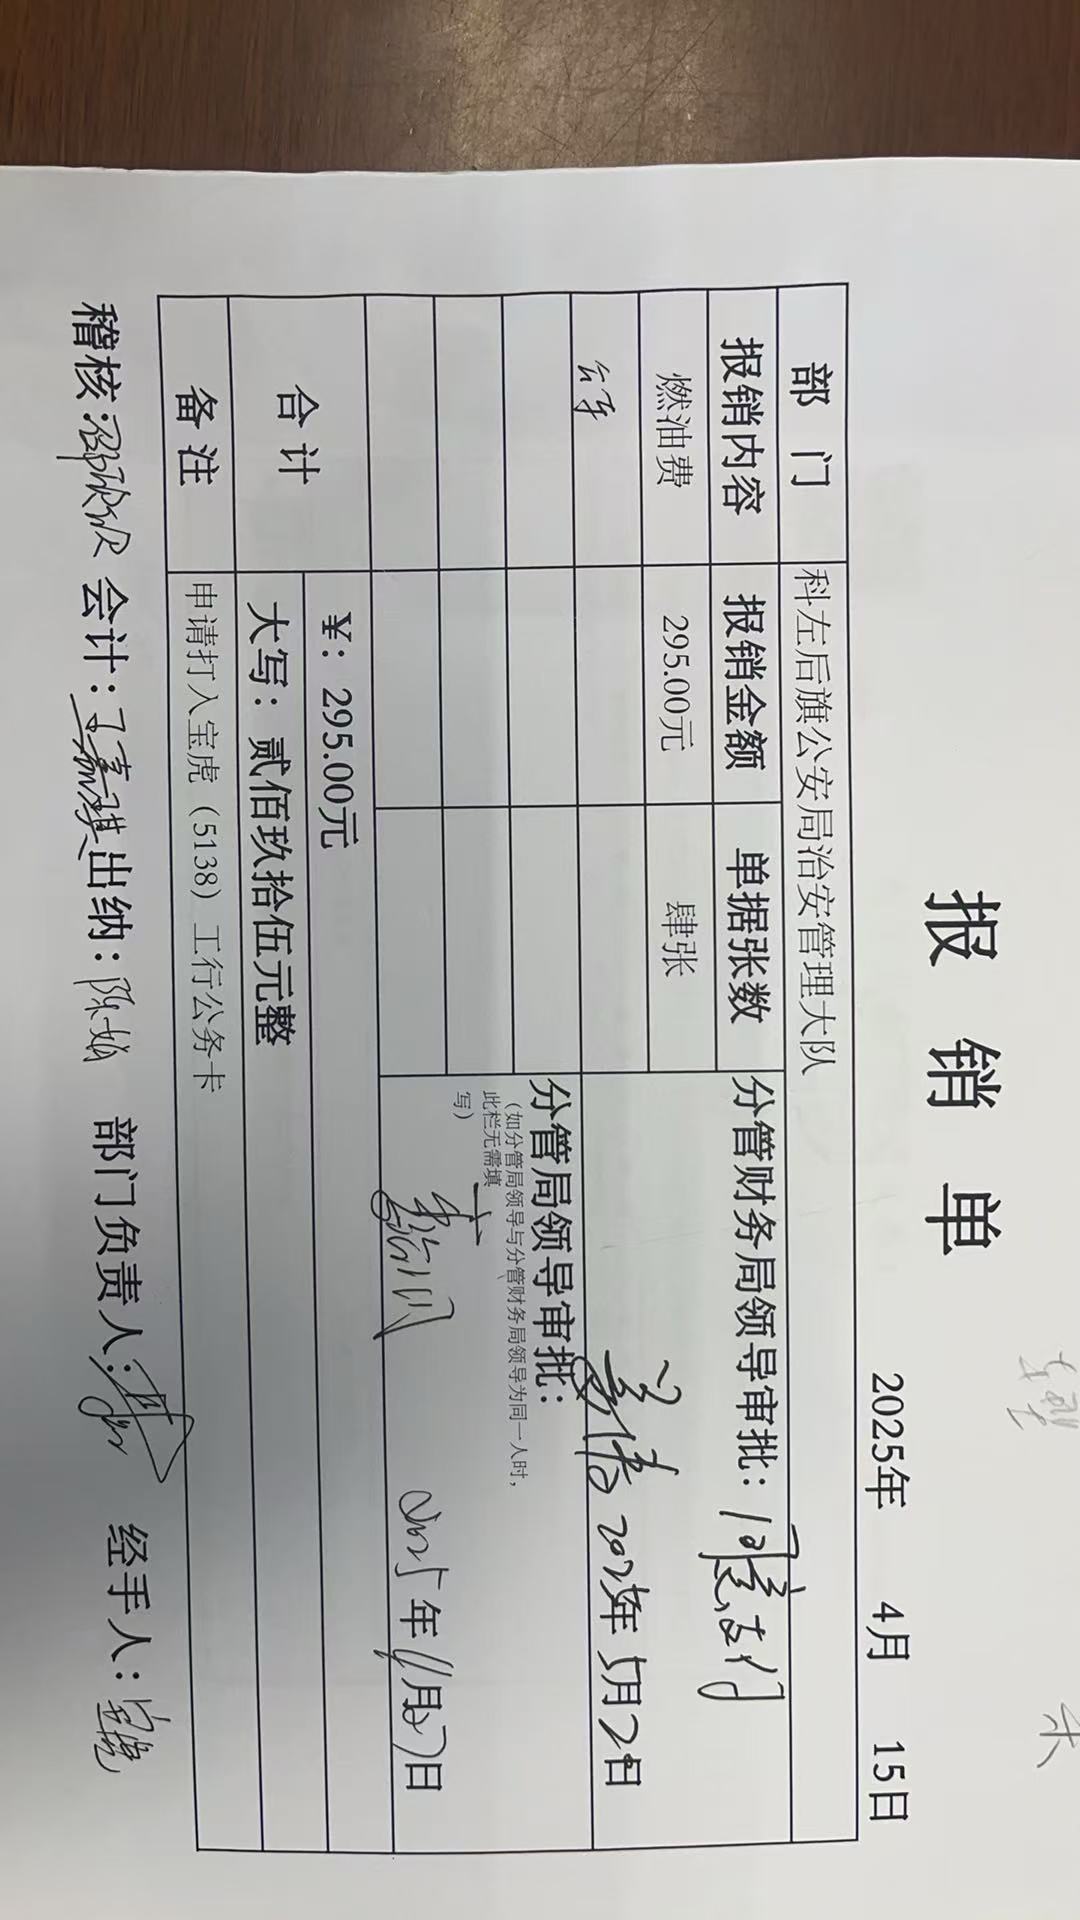 报 销 单
2025年 4月 15日
部 门 科左后旗公安局治安管理大队
报销内容 报销金额 单据张数 分管财务局领导审批：同意支付
燃油费 295.00元 肆张
2025年5月2日
分管局领导审批：
（如分管局领导与分管财务局领导为同一人时，
此栏无需填
写）
2025年4月27日
合 计 ¥：295.00元
大写：贰佰玖拾伍元整
备 注 申请打入宝虎（5138）工行公务卡
稽核： 会计： 出纳： 部门负责人： 经手人：